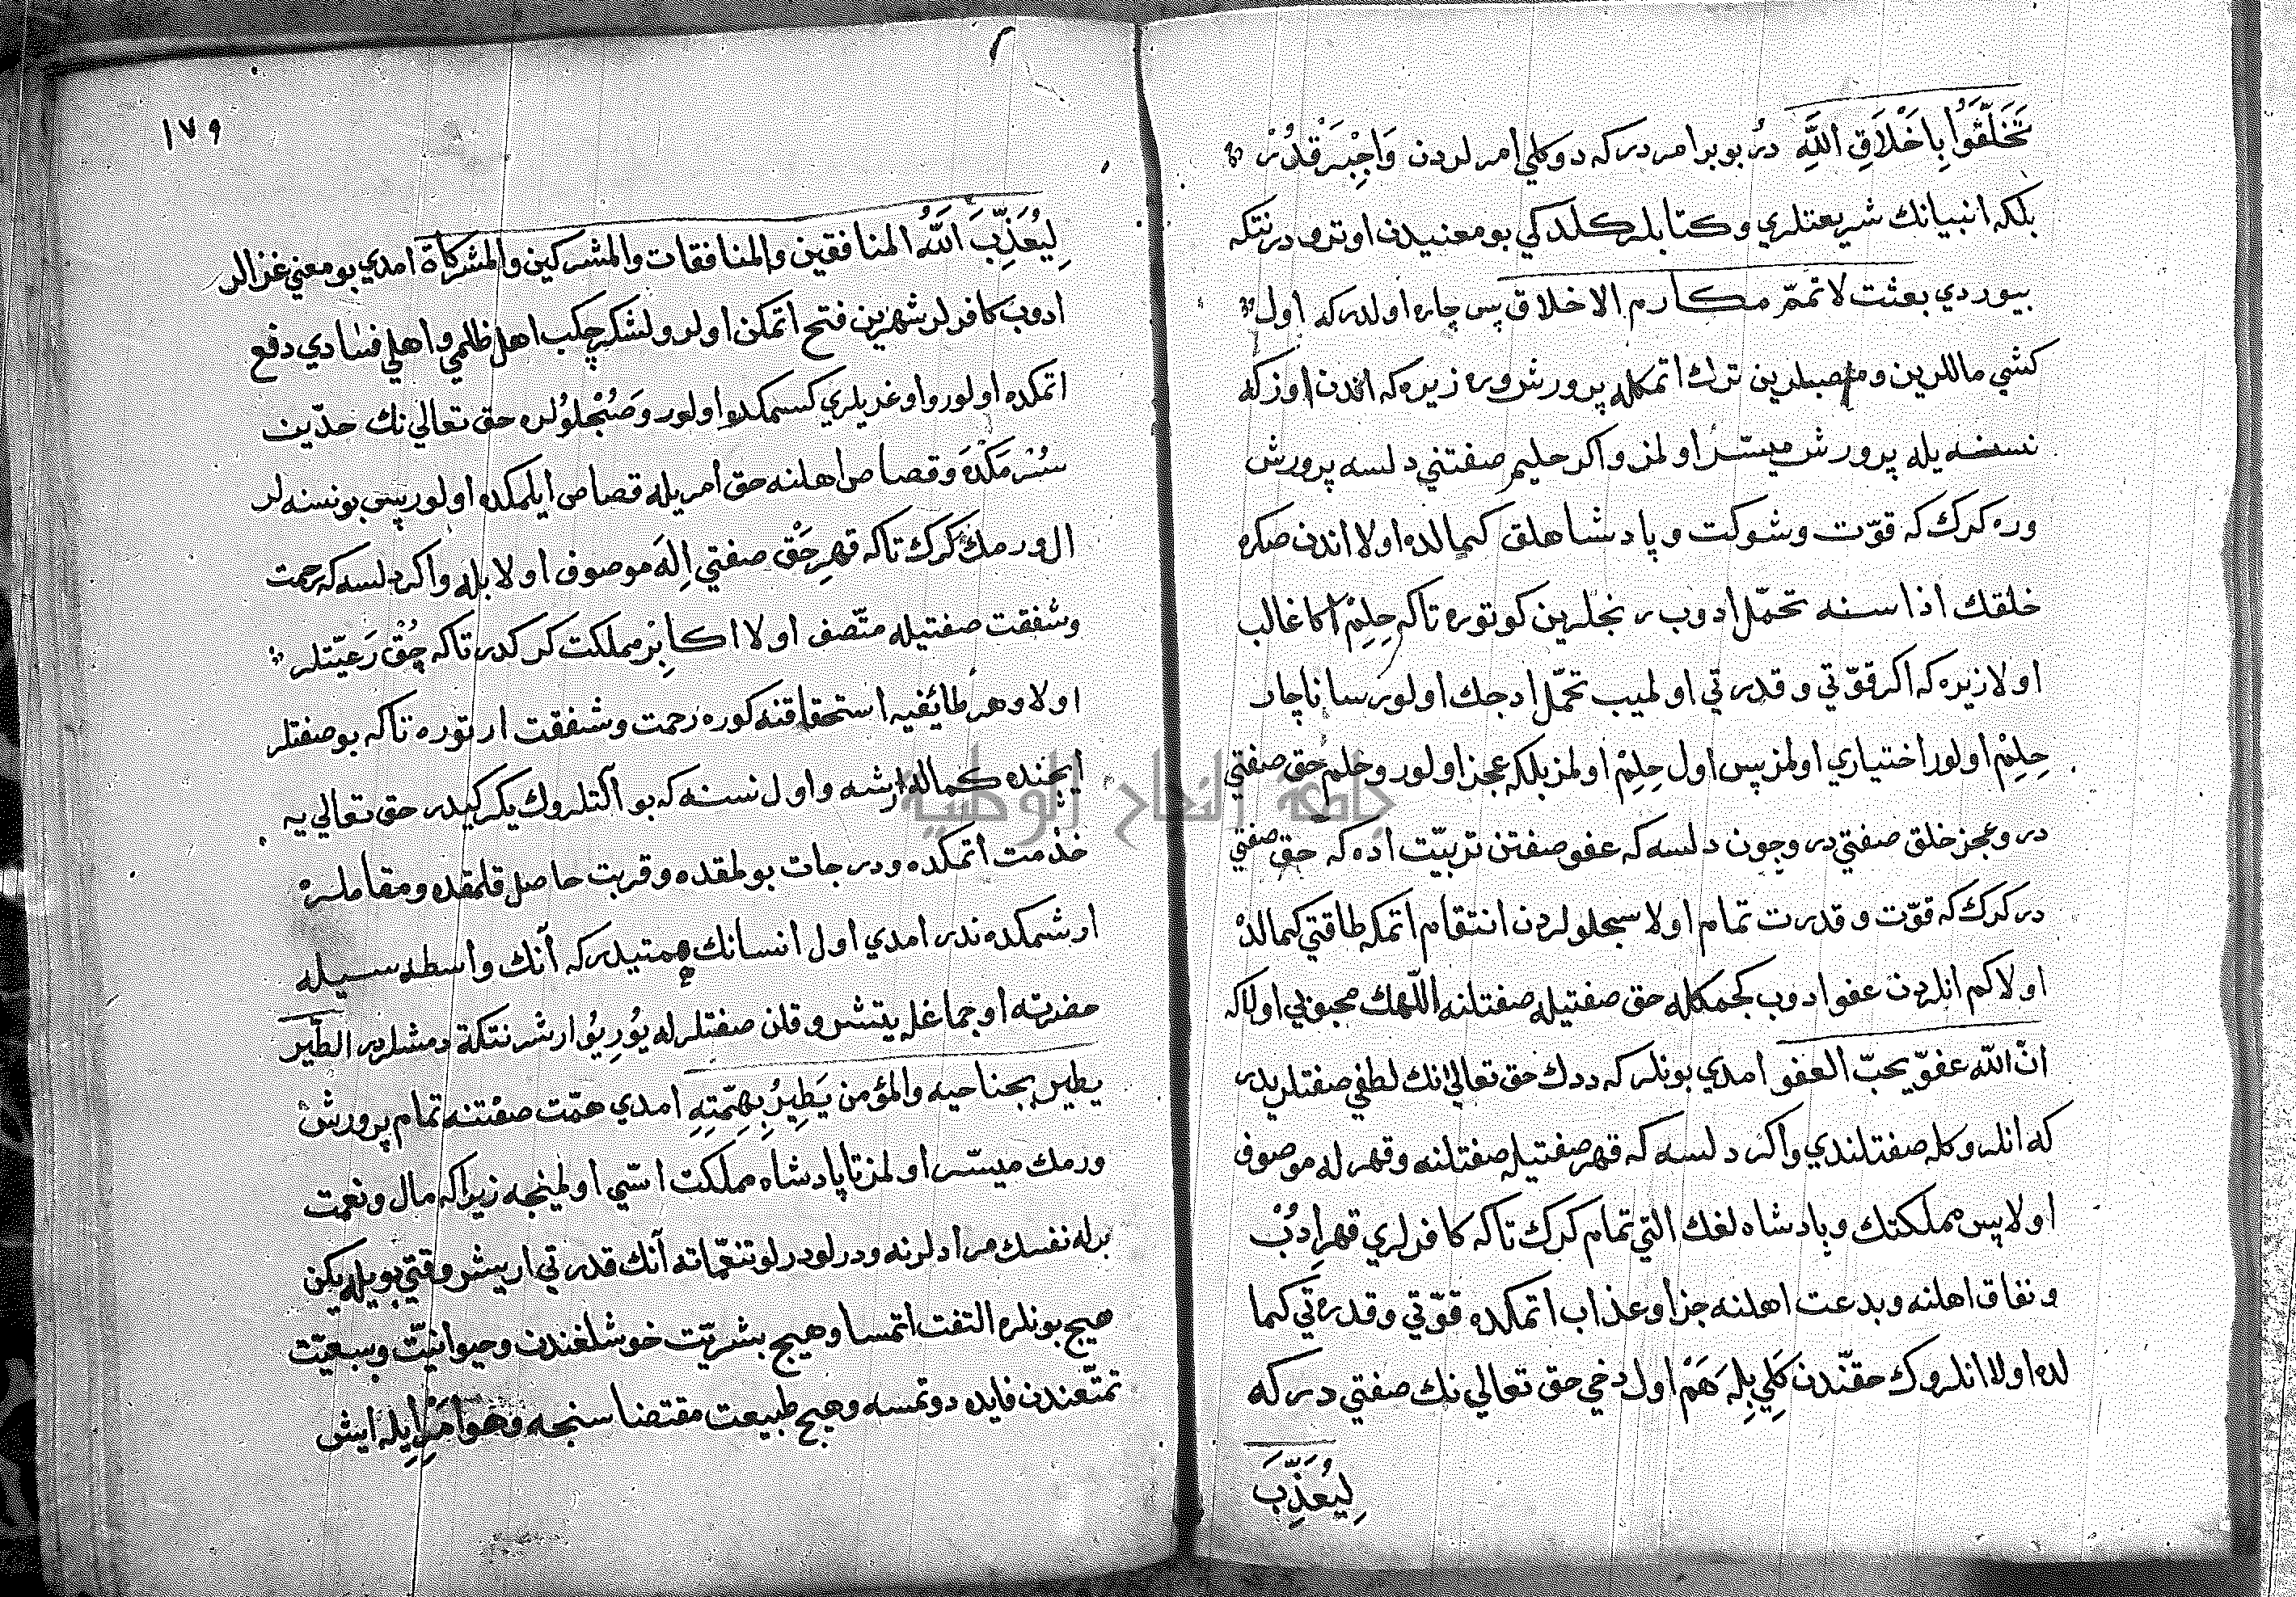 تَخَلَّقُوا بِاَخْلَاقِ اللّٰهِ دُر بو بر امر در كه دوكلي امر لردن وَاجِبْرَقْدُرْ
بلكه انبيانك شريعتلري و كتابلر كلدكي بو معنيدن اوترو در نتكه
بيوردي بعثت لاتمّم مكارم الاخلاق پس چاره اولدر كه اول
كشي ماللرين و منصبلرين ترك اتمكله پرورش وره زيره كه اندن اوزكه
نسنه يله پرورش ميسّر اولمز و اكر حليم صفتني دلسه پرورش
وره كرك كه قوّت و شوكت و پادشاهلق كمالده اولا اندن صكره
خلقك اذاسنه تحمّل ادوب رنجلرين كوتوره تاكه حِلِمْ اكا غالب
اولا زيره كه اكر قوّتي و قدرتي اولميب تحمّل ادجك اولورسا ناچار
حِلِمْ اولور اختياري اولمز پس اول حِلِمْ اولمز بلكه عجز اولور و حلم حق صفتي
در و عجز خلق صفتي در و چون دلسه كه عفو صفتن تربيّت اده كه حق صفتي
در كرك كه قوّت و قدرت تمام اولا سجلولردن انتقام اتمكه طاقتي كمالدْ
اولا كم انلردن عفو ادوب كجمكله حق صفتيله صفتلنه اللّهك محبوبي اولا كه
انّ اللّه عفوّ يحبّ العفو امدي بونلر كه ددك حق تعالي نك لطفي صفتلريدر
كه انلر وكله صفتلندي و اكر دلسه كه قهر صفتيله صفتلنه و قهر له موصوف
اولا پس مملكتك و پادشاه لغك التي تمام كرك تاكه كافرلري قهر ادُبْ
و نفاق اهلنه و بدعت اهلنه جزا و عذاب اتمكده قوّتي و قدرتي كما
لده اولا انلروك حقّندن كَلِي بِلِه هَمْ اول دخي حق تعالي نك صفتي در كه
لِيُعَذِّبَ
١٧٩
لِيُعَذِّبَ اللّٰهُ المنافقين والمنافقات والمشركين والمشركاة امدي بو معني غزالر
ادوب كافرلر شهرين فتح اتمكن اولر و لشكر چكب اهل ظلمي و اهلي فسادي دفع
اتمكده اولور و اوغريلري كسمكده اولور و صُنْجلولره حق تعالي نك حدّين
سُرْمَكْدَه و قصاص اهلنه حق امريله قصاص ايلمكده اولور پس بو نسنه لر
ال ورمك كرك تاكه قهرِ حَقْ صفتي اِلَه موصوف اولا بله و اكر دلسه كه رحمت
و شفقت صفتيله متّصف اولا اكابِر مملكت كركدر تاكه چُقْ رَعيّتلر
اولا و هر طائفيه استحقاقنه كوره رحمت و شفقت ارتوره تاكه بو صفتلر
ايچنده كماله ارشه و اول نسنه كه بو آلتلروك يكركيدر حق تعالي يه
خذمت اتمكده و درجات بولمقده و قربت حاصل قلمقده و مقاملرْ
ارشمكده ندر امدي اول انسانك همتيدر كه آنك واسطه سيله
حضرته اوجماغله يتشر و قلن صفتلر له يُورِيُو ارشر نتكة دمشلردر الطّير
يطير بجناحيه والمؤمن يَطِيرُ بِهِمَّتِهِ امدي همّت صفتنه تمام پرورش
ورمك ميسّر اولمز تا پادشاه مملكت اسّي اولمينجه زيرا كه مال و نعمت
برله نفسك مرادلرنه و درلو درلو تنعّماته آنك قدرتي اريشر وقتي بويله يكن
هيچ بونلره التفت اتمسا و هيچ بشريّت خوشلغندن و حيوانيّت و سبعيّت
تمتّعندن فايده دوتمسه و هيچ طبيعت مقتضاسنجه و هوا اَمْرِ ايله ايش